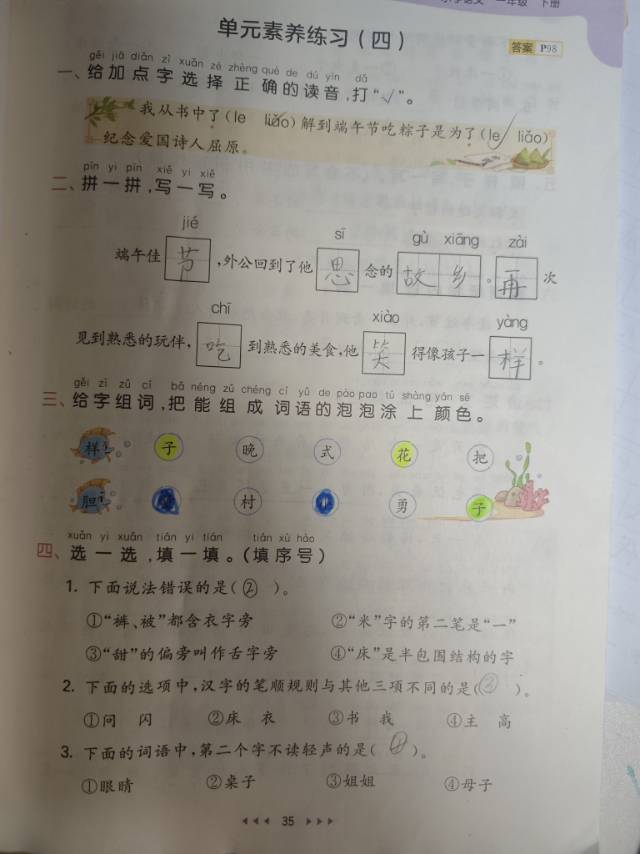 小学语文 一年级 下册
单元素养练习(四)
答案 P98
gěi jiā diǎn zì xuǎn zé zhèng què de dú yīn dǎ
一、给加点字选择正确的读音,打“√”。
我从书中了(le liǎo)解到端午节吃粽子是为了(le liǎo)
纪念爱国诗人屈原。
pīn yi pīn xiě yi xiě
二、拼一拼,写一写。
jié sī gù xiāng zài
端午佳节,外公回到了他思念的故乡。再次
chī xiào yàng
见到熟悉的玩伴,吃到熟悉的美食,他笑得像孩子一样。
gěi zì zǔ cí bǎ néng zǔ chéng cí yǔ de pào pao tú shàng yán sè
三、给字组词,把能组成词语的泡泡涂上颜色。
样 子 晚 式 花 把
胆 村 勇 子
xuǎn yi xuǎn tián yi tián tián xù hào
四、选一选,填一填。(填序号)
1. 下面说法错误的是(②)。
①“裤、被”都含衣字旁 ②“米”字的第二笔是“一”
③“甜”的偏旁叫作舌字旁 ④“床”是半包围结构的字
2. 下面的选项中,汉字的笔顺规则与其他三项不同的是(②)。
①问 闪 ②床 衣 ③书 我 ④主 高
3. 下面的词语中,第二个字不读轻声的是(①)。
①眼睛 ②桌子 ③姐姐 ④母子
35